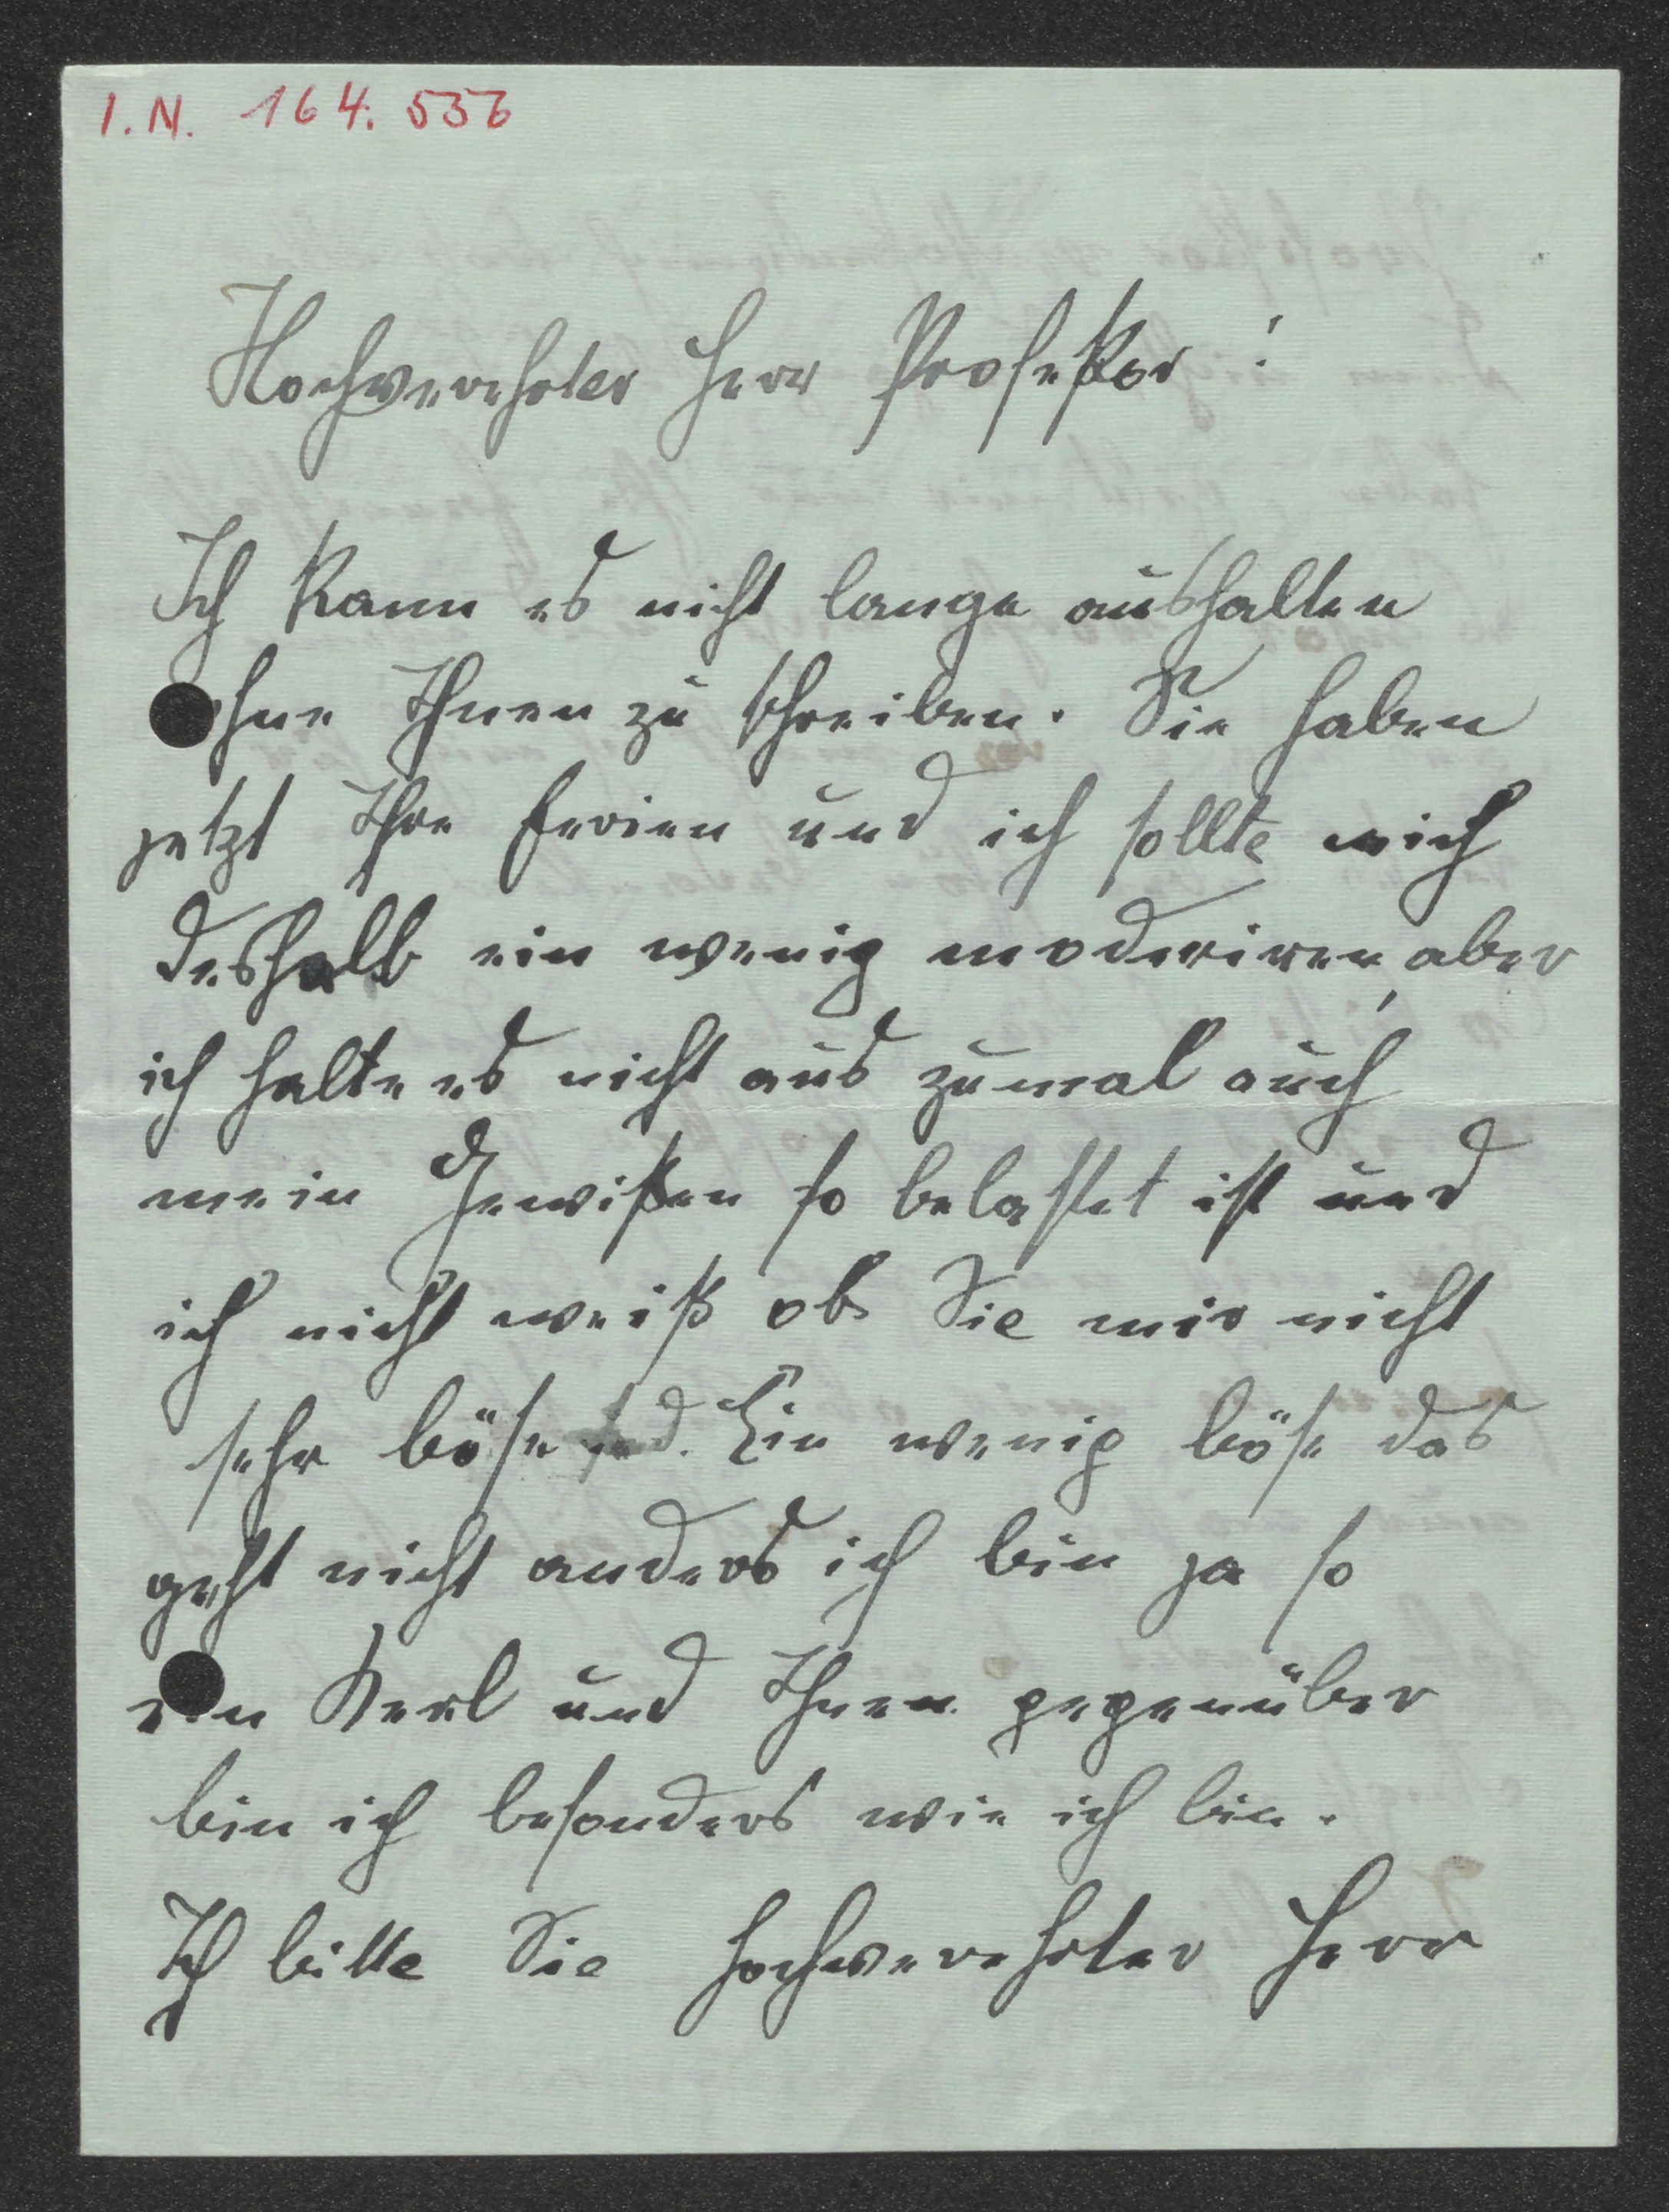 I.N. 164.536
Hochverehrter Herr Profeßor!
Ich kann es nicht lange aushalten
ohne Ihnen zu schreiben. Sie haben
jetzt Ihre Ferien und ich sollte mich
deshalb ein wenig moderiren, aber
ich halte es nicht aus zumal auch
mein Gewißen so belastet ist und
ich nicht weiß ob Sie mir nicht
sehr böse sind. Ein wenig böse das
geht nicht anders ich bin ja so
ein Kerl und Ihnen gegenüber
bin ich besonders wie ich bin.
Ich bitte Sie hochverehrter Herr